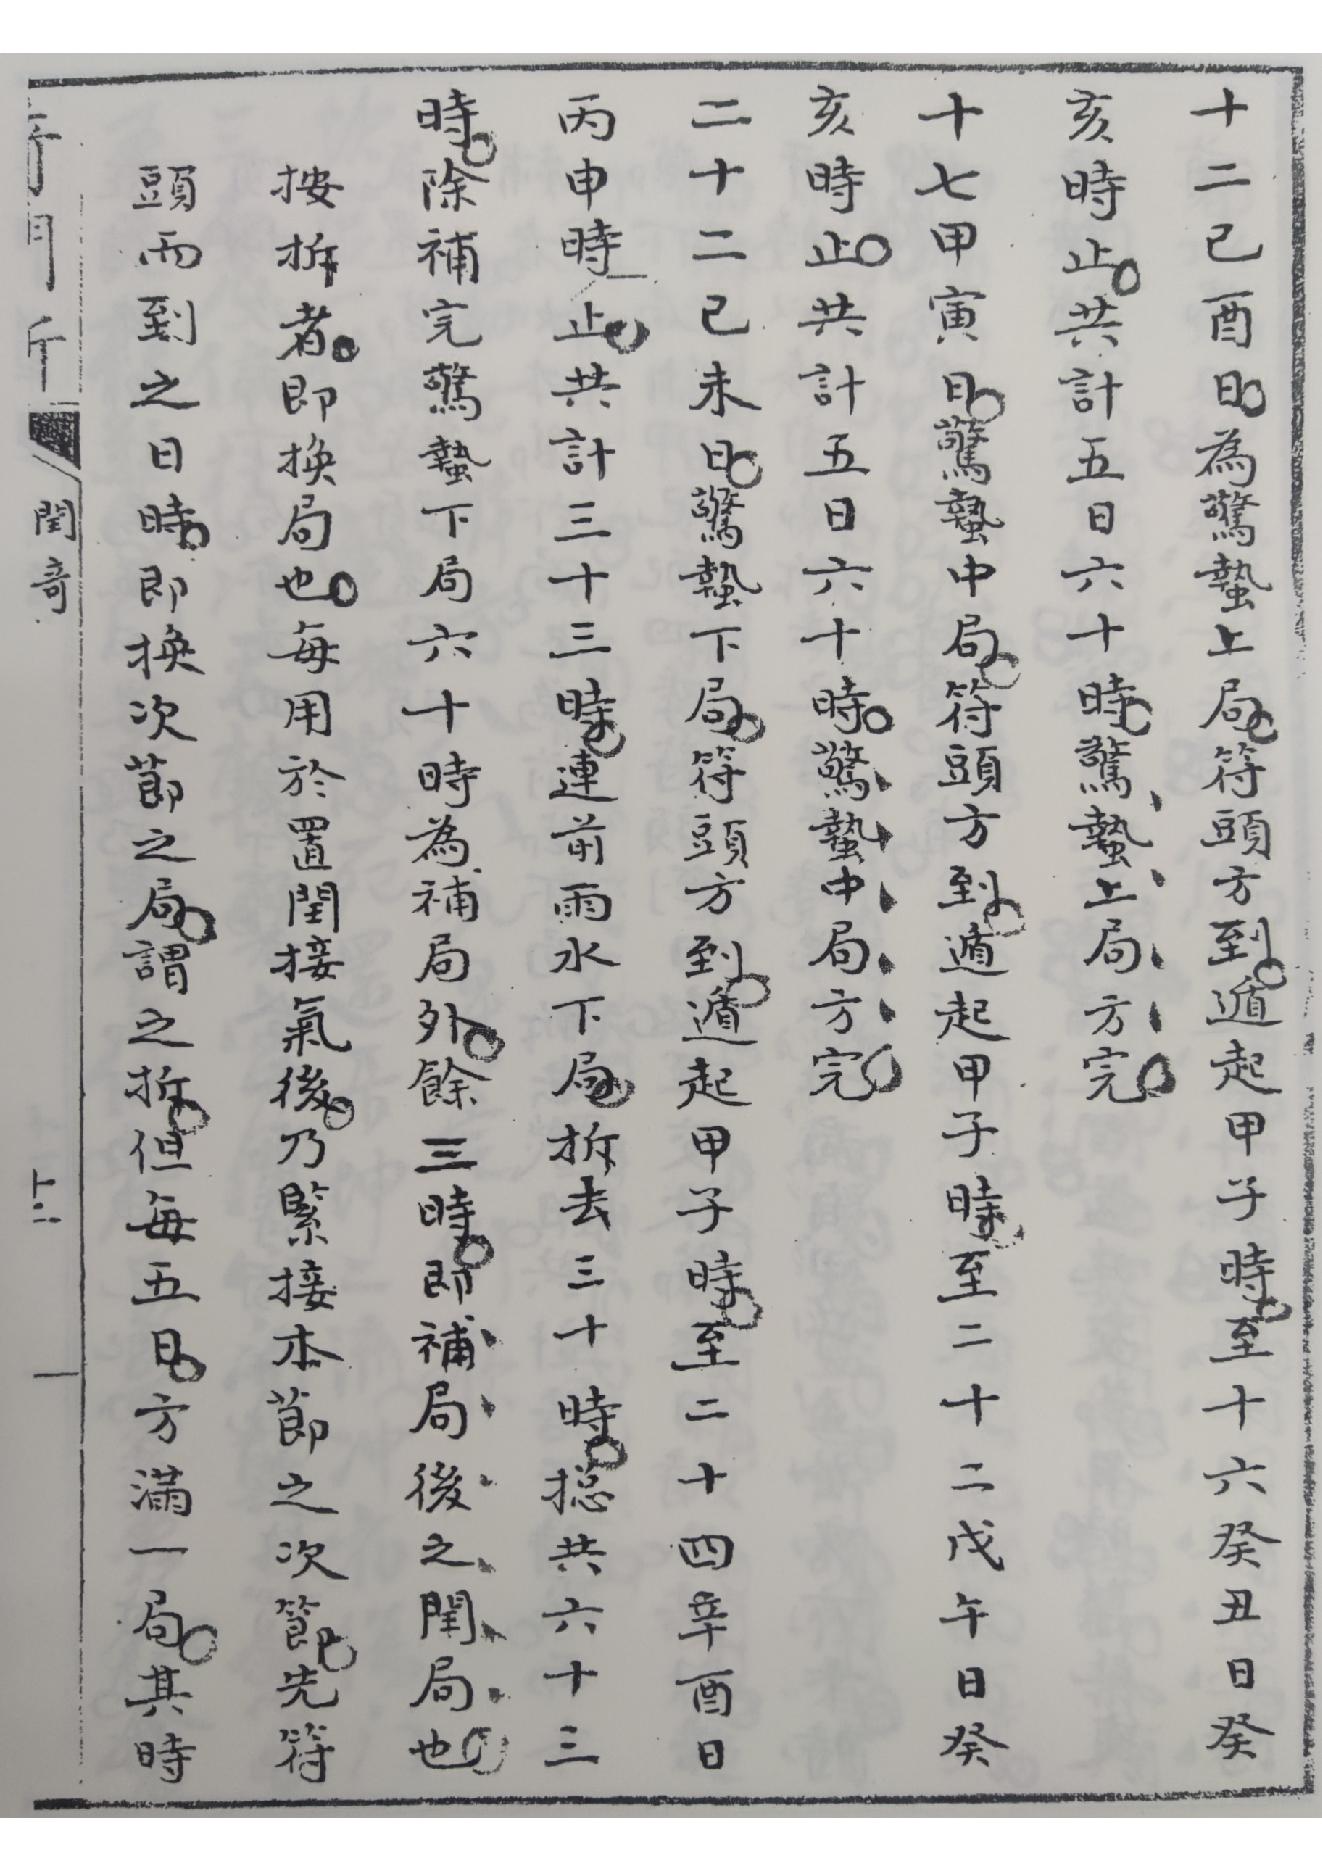 十二己酉日。為驚蟄上局。符頭方到。遁起甲子時。至十六癸丑日癸
亥時止。共計五日六十時。驚蟄上局方完。
十七甲寅日。驚蟄中局。符頭方到。遁起甲子時。至二十二戊午日癸
亥時止。共計五日六十時。驚蟄中局方完。
二十二己未日。驚蟄下局。符頭方到。遁起甲子時。至二十四辛酉日
丙申時止。共計三十三時。連前雨水下局。拆去三十時。搃共六十三
時。除補完驚蟄下局六十時為補局外。餘三時。即補局後之閏局也。
按拆者。即換局也。每用於置閏接氣後。乃緊接本節之次節。先符
頭而到之日時。即換次節之局。謂之拆。但每五日。方滿一局。其時
閏奇
十二